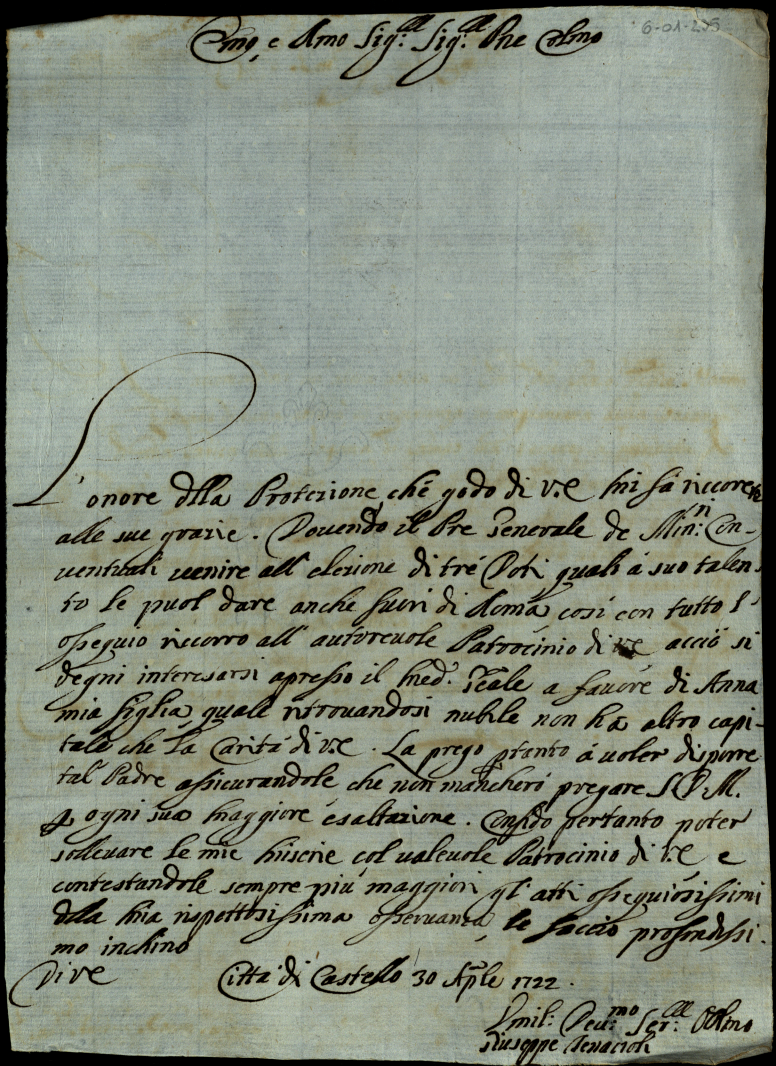 6-01-235
Emo, e Rmo Sig:re Sig:re Pne Colmo
L'onore dlla Protezione che godo di V.E mi fà riccorere
alle sue grazie. Dovendo il Pre Generale de Min:ri Con-
ventuali venire all'elezione di trè Doti quali à suo talen
to le puol dare anche fuori di Roma così con tutto l'
ossequio riccorro all'autorevole Patrocinio di VE acciò si
degni interesarsi apresso il med:o Gñale a favore di Anna
mia figlia, quale ritrovandosi nubile non ha altro capi-
tale che la Carità di V.E. La prego ptanto à voler disporre
tal Padre assicurandole che non mancherò pregare S.D.M.
p ogni sua maggiore esaltazione. Confido pertanto poter
sollevare le mie miserie col valevole Patrocinio di V.E e
contestandole sempre più maggiori gl'atti ossequiosissimi
dlla mia rispettosissima osservanza, le faccio profondissi-
mo inchino
Di VE Città di Castello 30 Aprle 1722.
Umil: Dev:mo Ser:re Obblmo
Giuseppe Tenacioli